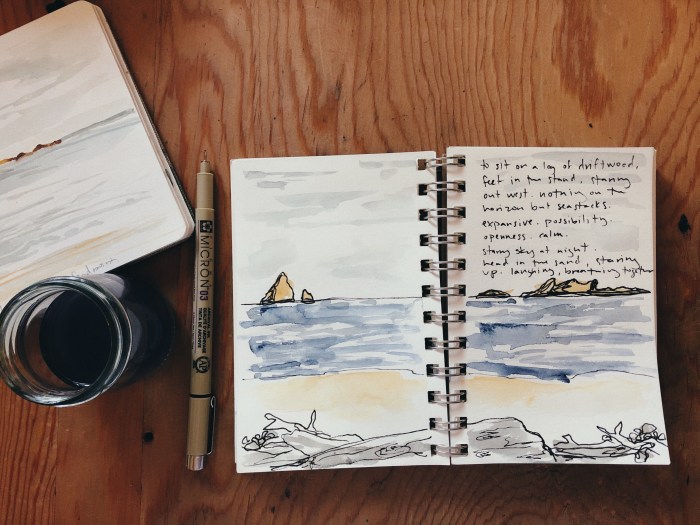 to sit on a log of driftwood,
feet in the sand, staring
out west. nothing on the
horizon but seastacks.
expansive. possibility.
openness. calm.
starry sky at night.
head in the sand, staring
up. laughing, breathing together
MICRON 03